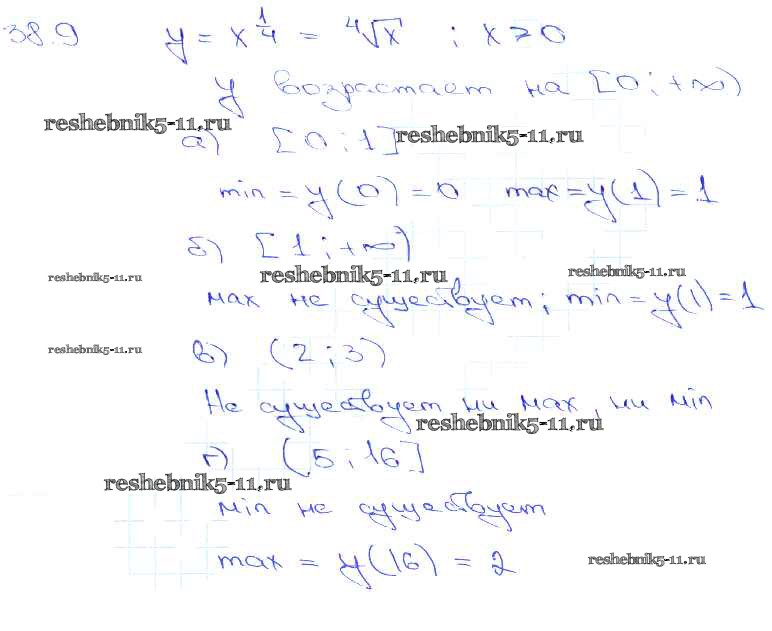 38.9 y = x^{1/4} = ⁴√x ; x ≥ 0
y возрастает на [0 ; +∞)
reshebnik5-11.ru
а) [0 ; 1] reshebnik5-11.ru
min = y(0) = 0 max = y(1) = 1
б) [1 ; +∞)
reshebnik5-11.ru reshebnik5-11.ru reshebnik5-11.ru
max не существует; min = y(1) = 1
reshebnik5-11.ru в) (2 ; 3)
Не существует ни max, ни min
reshebnik5-11.ru
г) (5 ; 16]
reshebnik5-11.ru
min не существует
max = y(16) = 2 reshebnik5-11.ru